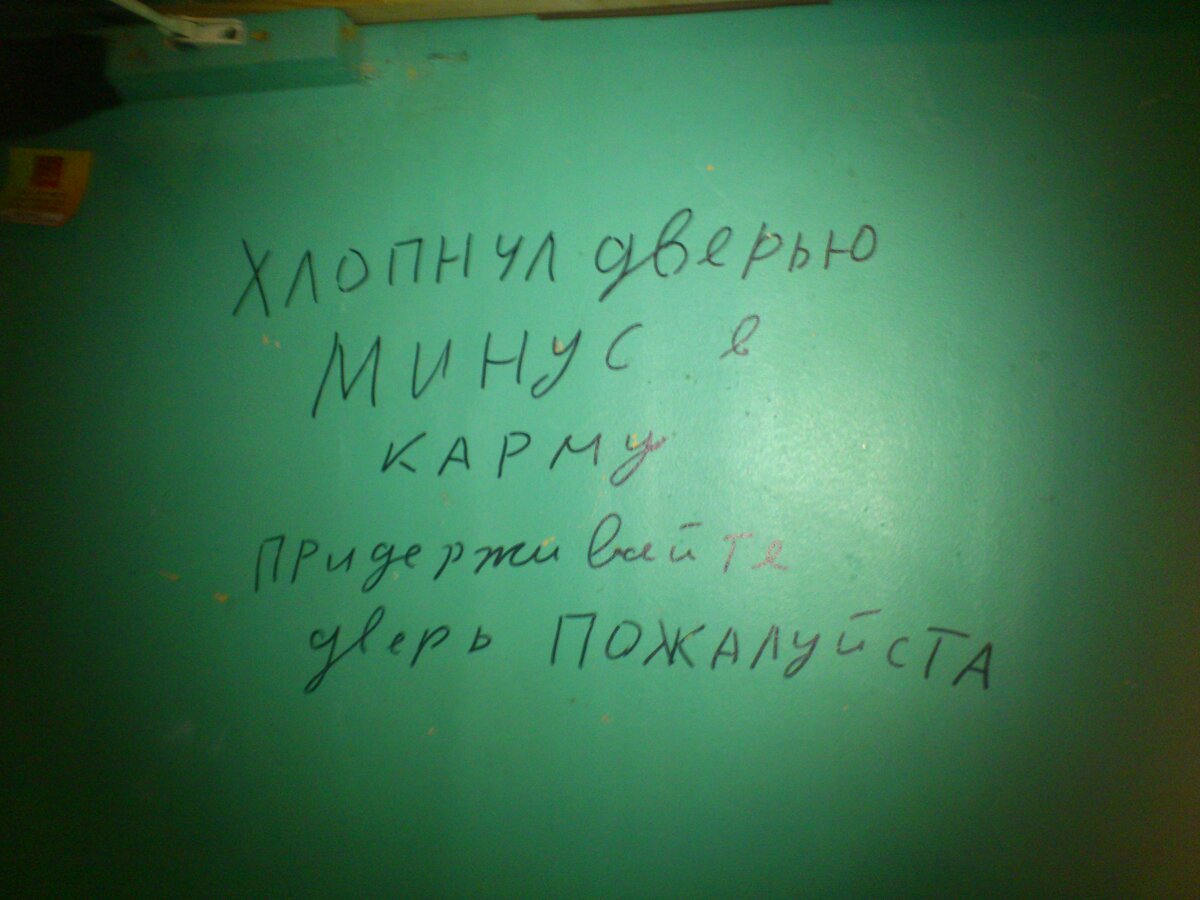 ХЛОПНУЛ дверью
МИНУС в
КАРМУ
придерживайте
дверь ПОЖАЛУЙСТА